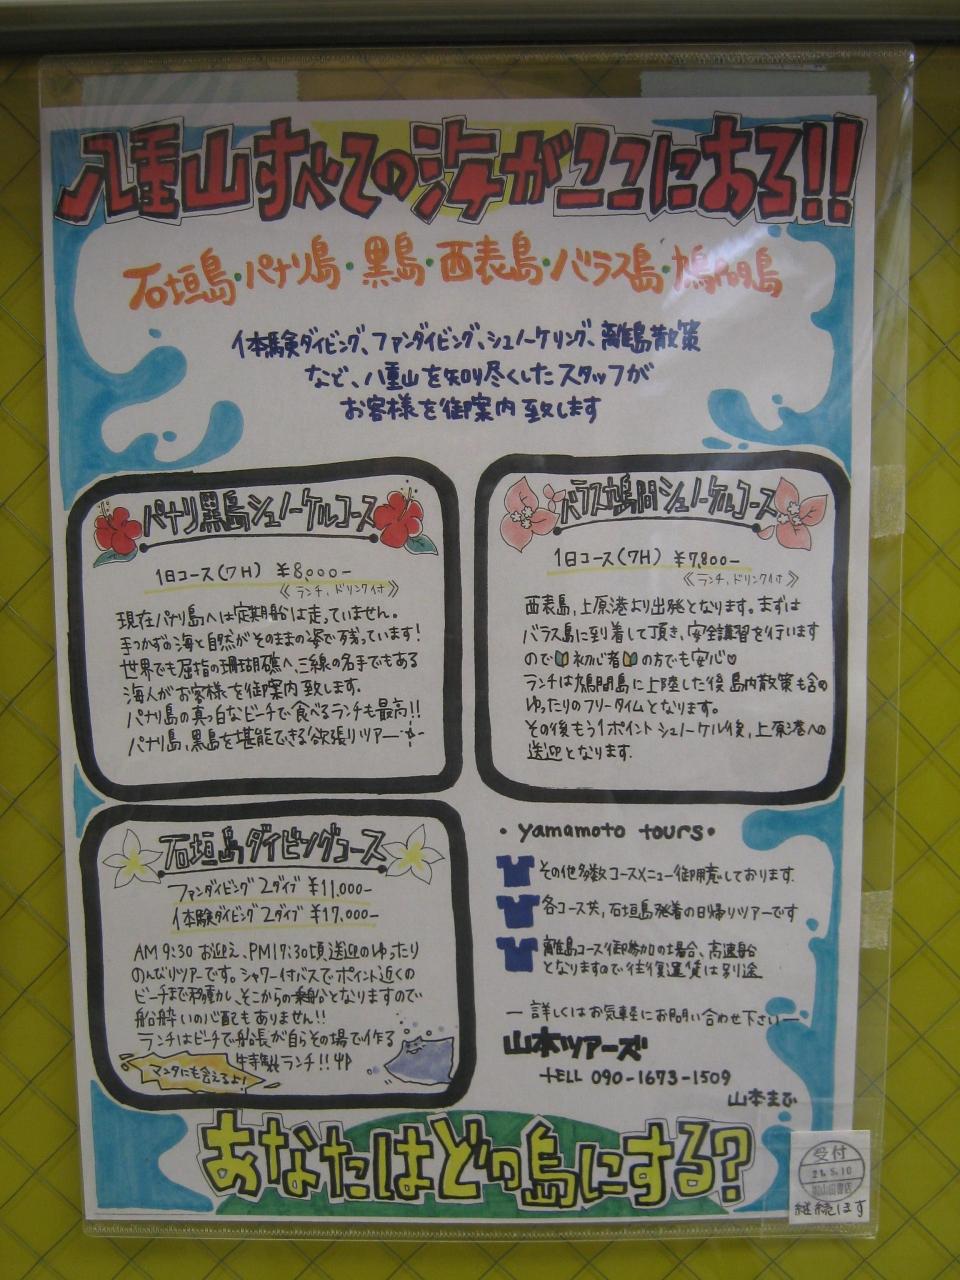 八重山すべての海がここにある!!
石垣島・パナリ島・黒島・西表島・バラス島・鳩間島
体験ダイビング、ファンダイビング、シュノーケリング、離島散策
など、八重山を知り尽くしたスタッフが
お客様を御案内致します
パナリ黒島シュノーケルコース
1日コース(7H) ¥8,000-
《ランチ、ドリンク付》
現在パナリ島へは定期船は走っていません。
手つかずの海と自然がそのままの姿で残っています!
世界でも屈指の珊瑚礁へ、三線の名手でもある
海人がお客様を御案内致します。
パナリ島の真っ白なビーチで食べるランチも最高!!
パナリ島、黒島を堪能できる欲張りツアー
バラス鳩間シュノーケルコース
1日コース(7H) ¥7,800-
《ランチ、ドリンク付》
西表島、上原港より出発となります。まずは
バラス島に到着して頂き、安全講習を行います
ので🔰初心者🔰の方でも安心♡
ランチは鳩間島に上陸した後 島内散策も含め
ゆったりのフリータイムとなります。
その後もう1ポイントシュノーケル後、上原港への
送迎となります。
石垣島ダイビングコース
ファンダイビング 2ダイブ ¥11,000-
体験ダイビング 2ダイブ ¥17,000-
AM9:30 お迎え、PM17:30頃送迎のゆったり
のんびりツアーです。シャワー付バスでポイント近くの
ビーチまで移動し、そこからの乗船となりますので
船酔いの心配もありません!!
ランチはビーチで船長が自らその場で作る
特製ランチ!!
マンタにも会えるよ!
・yamamoto tours・
その他多数コースメニュー御用意しております.
各コース共、石垣島発着の日帰りツアーです
離島コース御参加の場合、高速船
となりますので往復運賃は別途
ー詳しくはお気軽にお問い合わせ下さいー
山本ツアーズ
TELL 090-1673-1509
山本まぶ
あなたはどの島にする?
受付
21.5.10
継続ほす